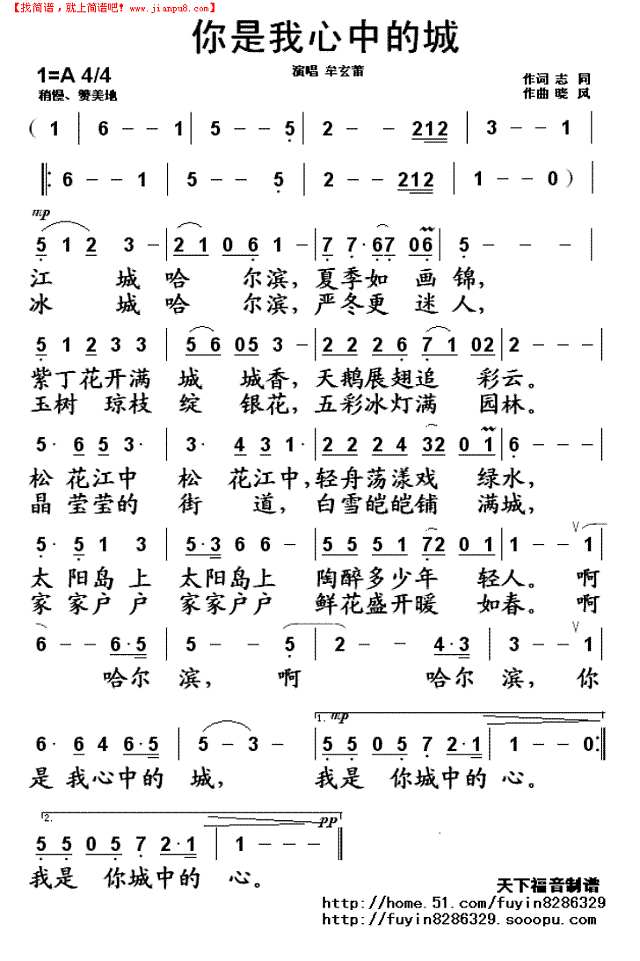 【找简谱，就上简谱吧！www.jianpu8.com】
你是我心中的城
1=A 4/4
演唱 牟玄莆
作词 志 同
稍慢、赞美地
作曲 晓 风
( 1 | 6 - - 1 | 5 - - 5 | 2 - - 212 | 3 - - 1 |
6 - - 1 | 5 - - 5 | 2 - - 212 | 1 - - 0 )
mp
5 1 2 3 - | 2 1 0 6 1 - | 7 7· 67 06 | 5 - -
江 城 哈 尔滨，夏季如 画锦，
冰 城 哈 尔滨，严冬更 迷人，
5 1 2 3 3 | 5 6 05 3 - | 2 2 2 6 7 1 02 | 2 - -
紫丁花开满 城 城香，天鹅展翅追 彩云。
玉树 琼枝 绽 银花，五彩冰灯满 园林。
5· 6 5 3· | 3· 4 3 1· | 2 2 2 4 32 0 1 | 6 - -
松 花江中 松 花江中，轻舟荡漾戏 绿水，
晶 莹莹的 街 道，白雪皑皑铺 满城，
5· 5 1 3 | 5·3 6 6 - | 5 5 5 1 72 0 2 | 1 - - V 1
太 阳岛上 太阳岛上 陶醉多少年 轻人。啊
家 家户户 家家户户 鲜花盛开暖 如春。啊
6 - - 6·5 | 5 - - 5 | 2 - - 4·3 | 3 - - V 1
哈尔 滨， 啊 哈尔 滨， 你
6· 6 4 6·5 | 5 - 3 - | 1. mp 5 5 0 5 7 2·1 | 1 - - 0
是 我心中的 城， 我是 你城中的 心。
2. pp
5 5 0 5 7 2·1 | 1 - - -
我是 你城中的 心。
天下福音制谱
http://home.51.com/fuyin8286329
http://fuyin8286329.sooopu.com